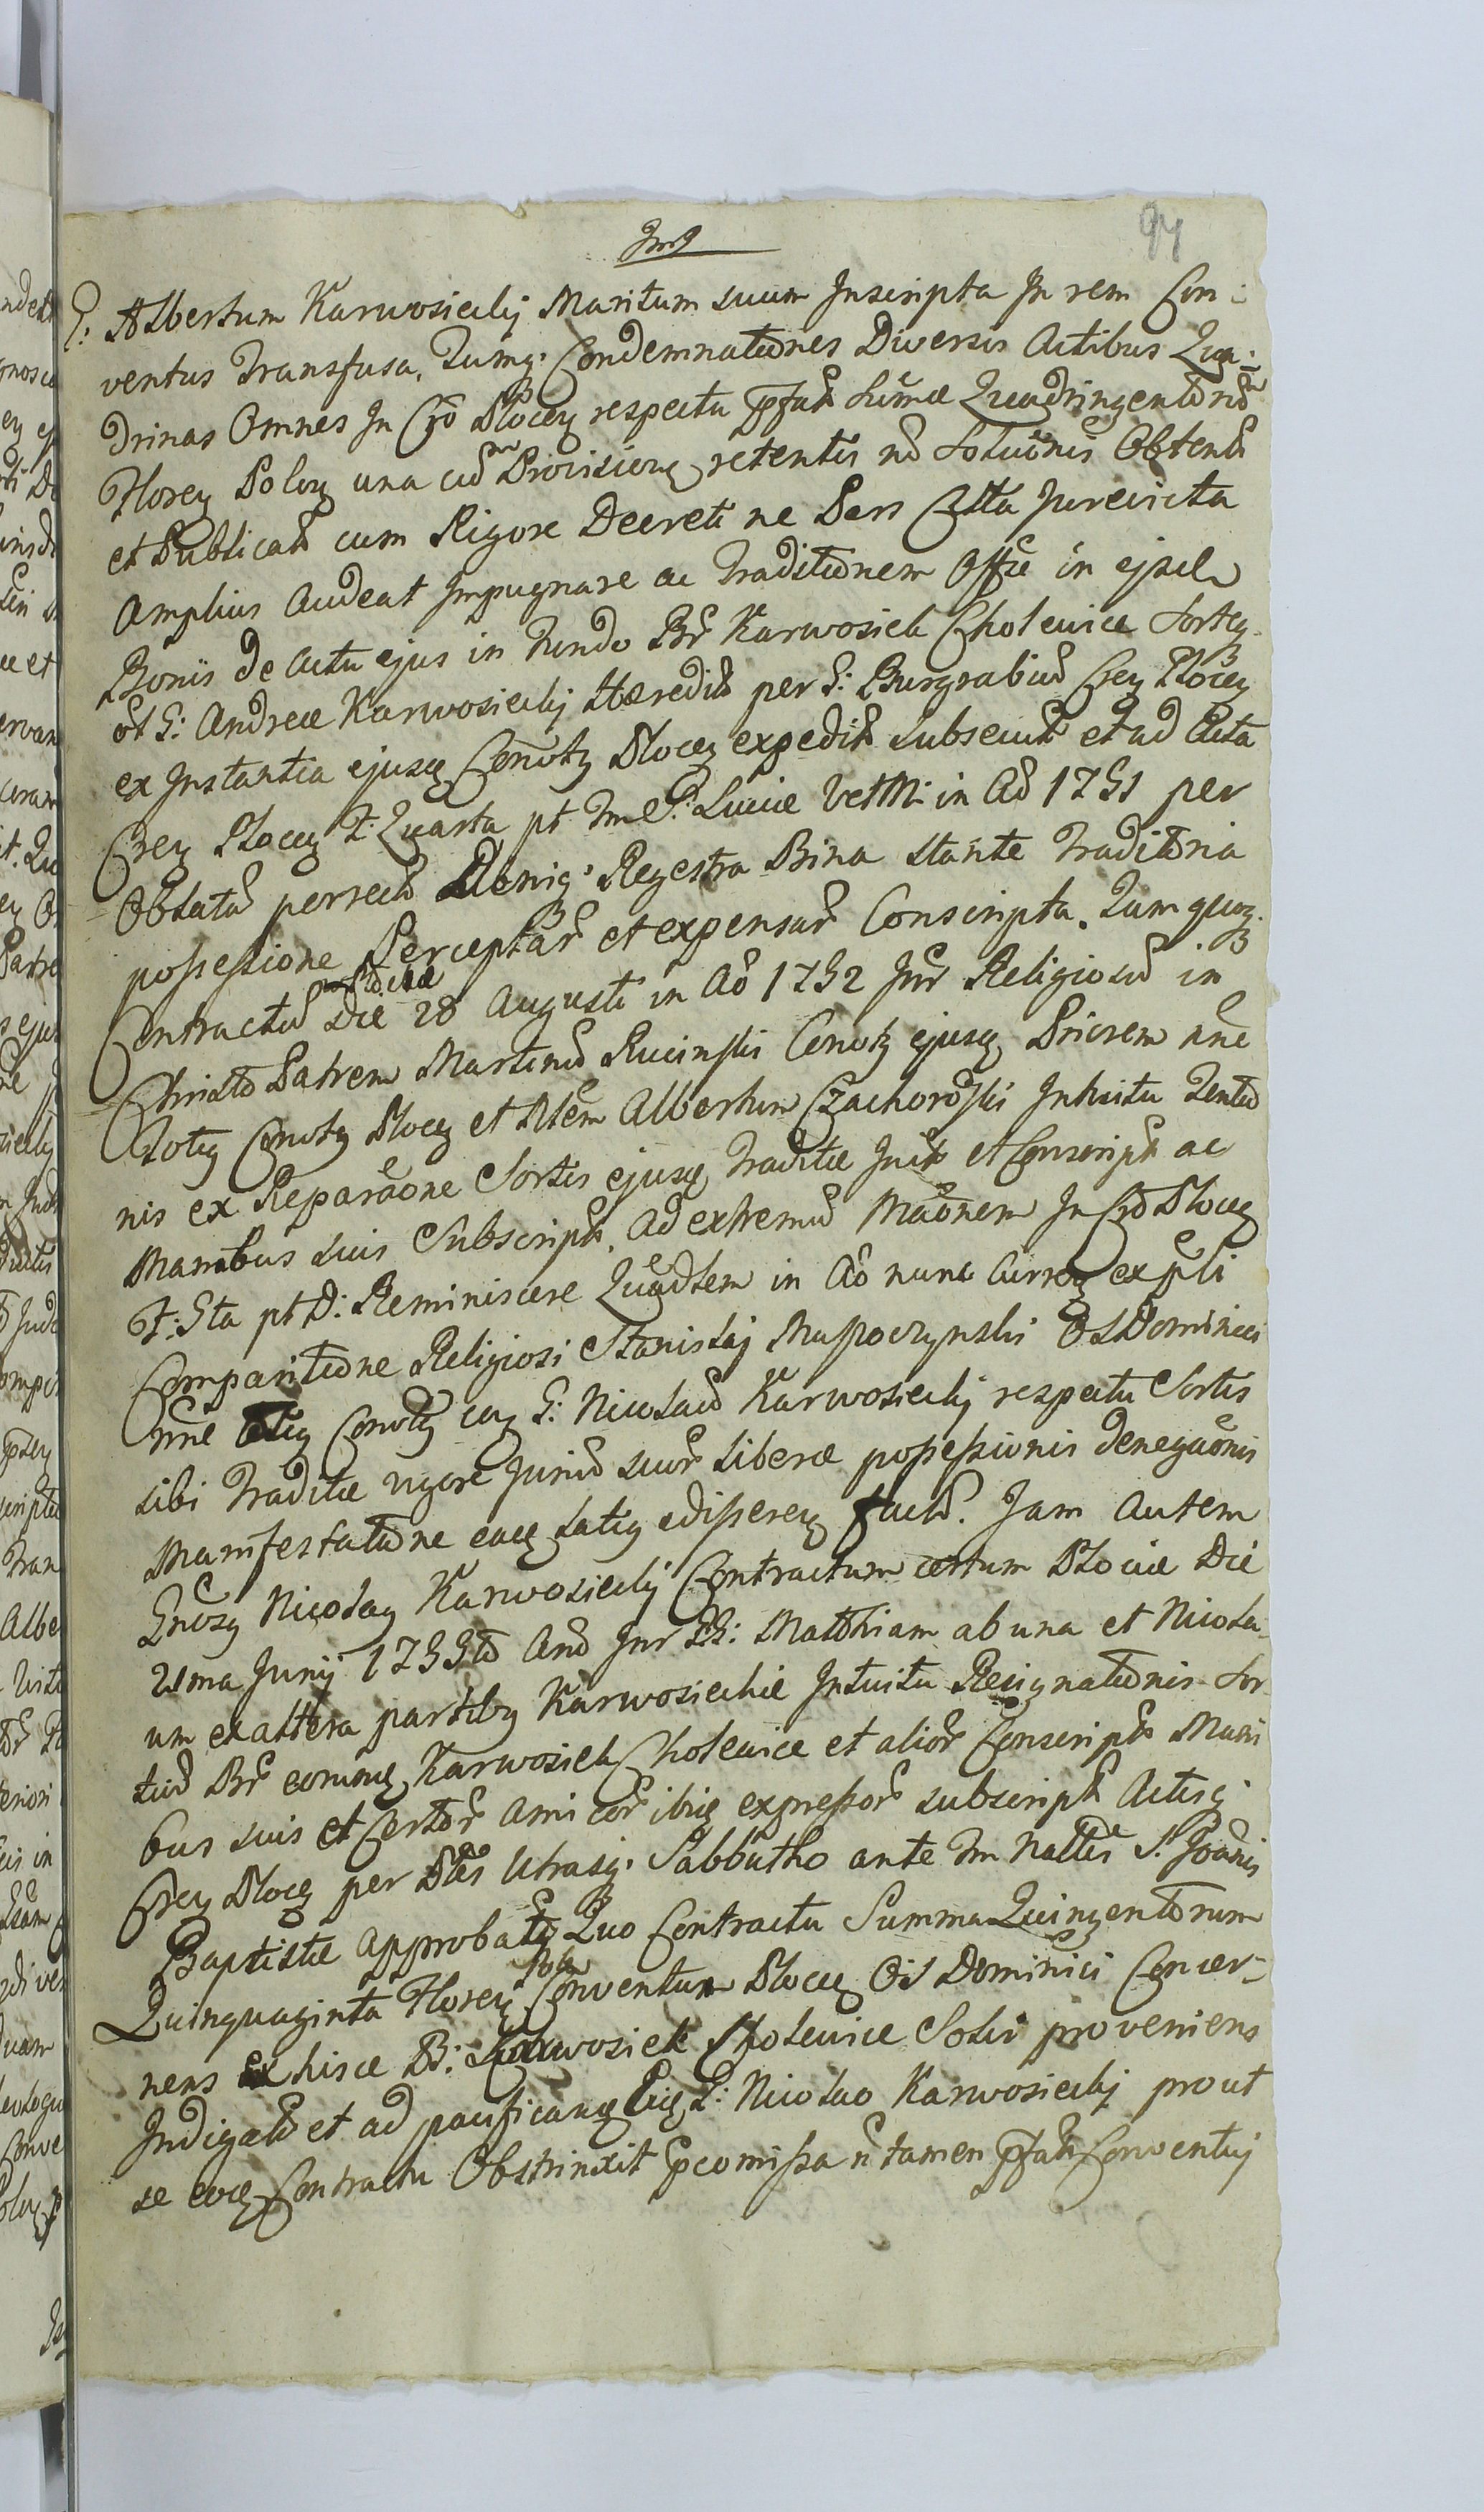 94
G: Albertum Karwosiecky Maritum suum Inscripta In rem Con:
ventus Transfusa, Tumq. Condemnationes Diversis Actibus Qua:
drinas Omnes In Cō Plocen respectu pfat Summæ Quadringentorū
Floren Polon una cū Provisione retentis nō Solutionis Obtent
et Publicat cum Rigore Decreti ne Pars Citta Jurevicta
Amplius Audeat Impugnare ac Traditionem Offic in ejusd
Bonis de Actu ejus in Fundo Br̄ Karwosieck Cholewice Sortq
ōt G: Andreæ Karwosiecky Hæredit per G: Burgrabiū Cren Plocen
ex Instantia ejusq Cōnvtq Plocen expedit subsecut et ad Acta
Cren Plocen F: Quarta pt Fm S: Luciæ VetM: in Aō 1751 per
Oblatā porrect Deniq. Regestra Bina stante Traditoria
possessione Perceptar et expensar Conscripta. Tum quoq.
Contractū Plociæ die 28 Augusti in Aō 1752 Intr Religiosū in
Christo Patrem Martinū Rucinski Cōnvtq ejusq Priorem nn̄e
totq Cōnvtq Plocen et Nlem Albertum Czachorowski Intuitu Tentio
nis ex Reparāone Sortis ejusq Traditæ Init et Conscript ac
Manibus suis Subscript. Ad extremū Māōnem In Cō Plocen
F: 5ta pt D: Reminiscere Quadlem in Aō nunc Curren ex pli
Comparitione Religiosi Stanislaj Mossoczynski OS Dominici
nn̄e totiq Cōnvtq cog G: Nicolaū Karwosiecky respectu Sortis
sibi Traditæ vigore Juriū suor Liberæ possessionis denegāōnis
Manifestatione eacq latiq edisseren fact. Jam Autem
Gnōsq Nicolaq Karwosiecky Contractum certum Plociæ Die
21ma Junij 1755to Anō Intr GG: Matthiam ab una et Nicola
um ex altera partibq Karwosieckie Intuitu Resignationis Sor
tiū Br̄ eorumq Karwosieck Cholewice et alior Conscript Mani
bus suis et Certor Amicor ibiq expressor subscript Actisq
Cren Plocen per Ptes Utrasq. Sabbatho ante Fm Nattis S. Joanis
Baptistæ Approbatō Quo Contractu Summa Quingentorum
Quinquaginta Floren Polon Conventum Plocen OS Dominici Concer-
nens ex hisce B: Karwosiek Cholewice Solvi proveniens
Indigat et ad pacificanq Eiq G: Nicolao Karwosiecky prout
se eoq Contractu Obstrinxit pcomissa n̄ tamen pfat Conventuj